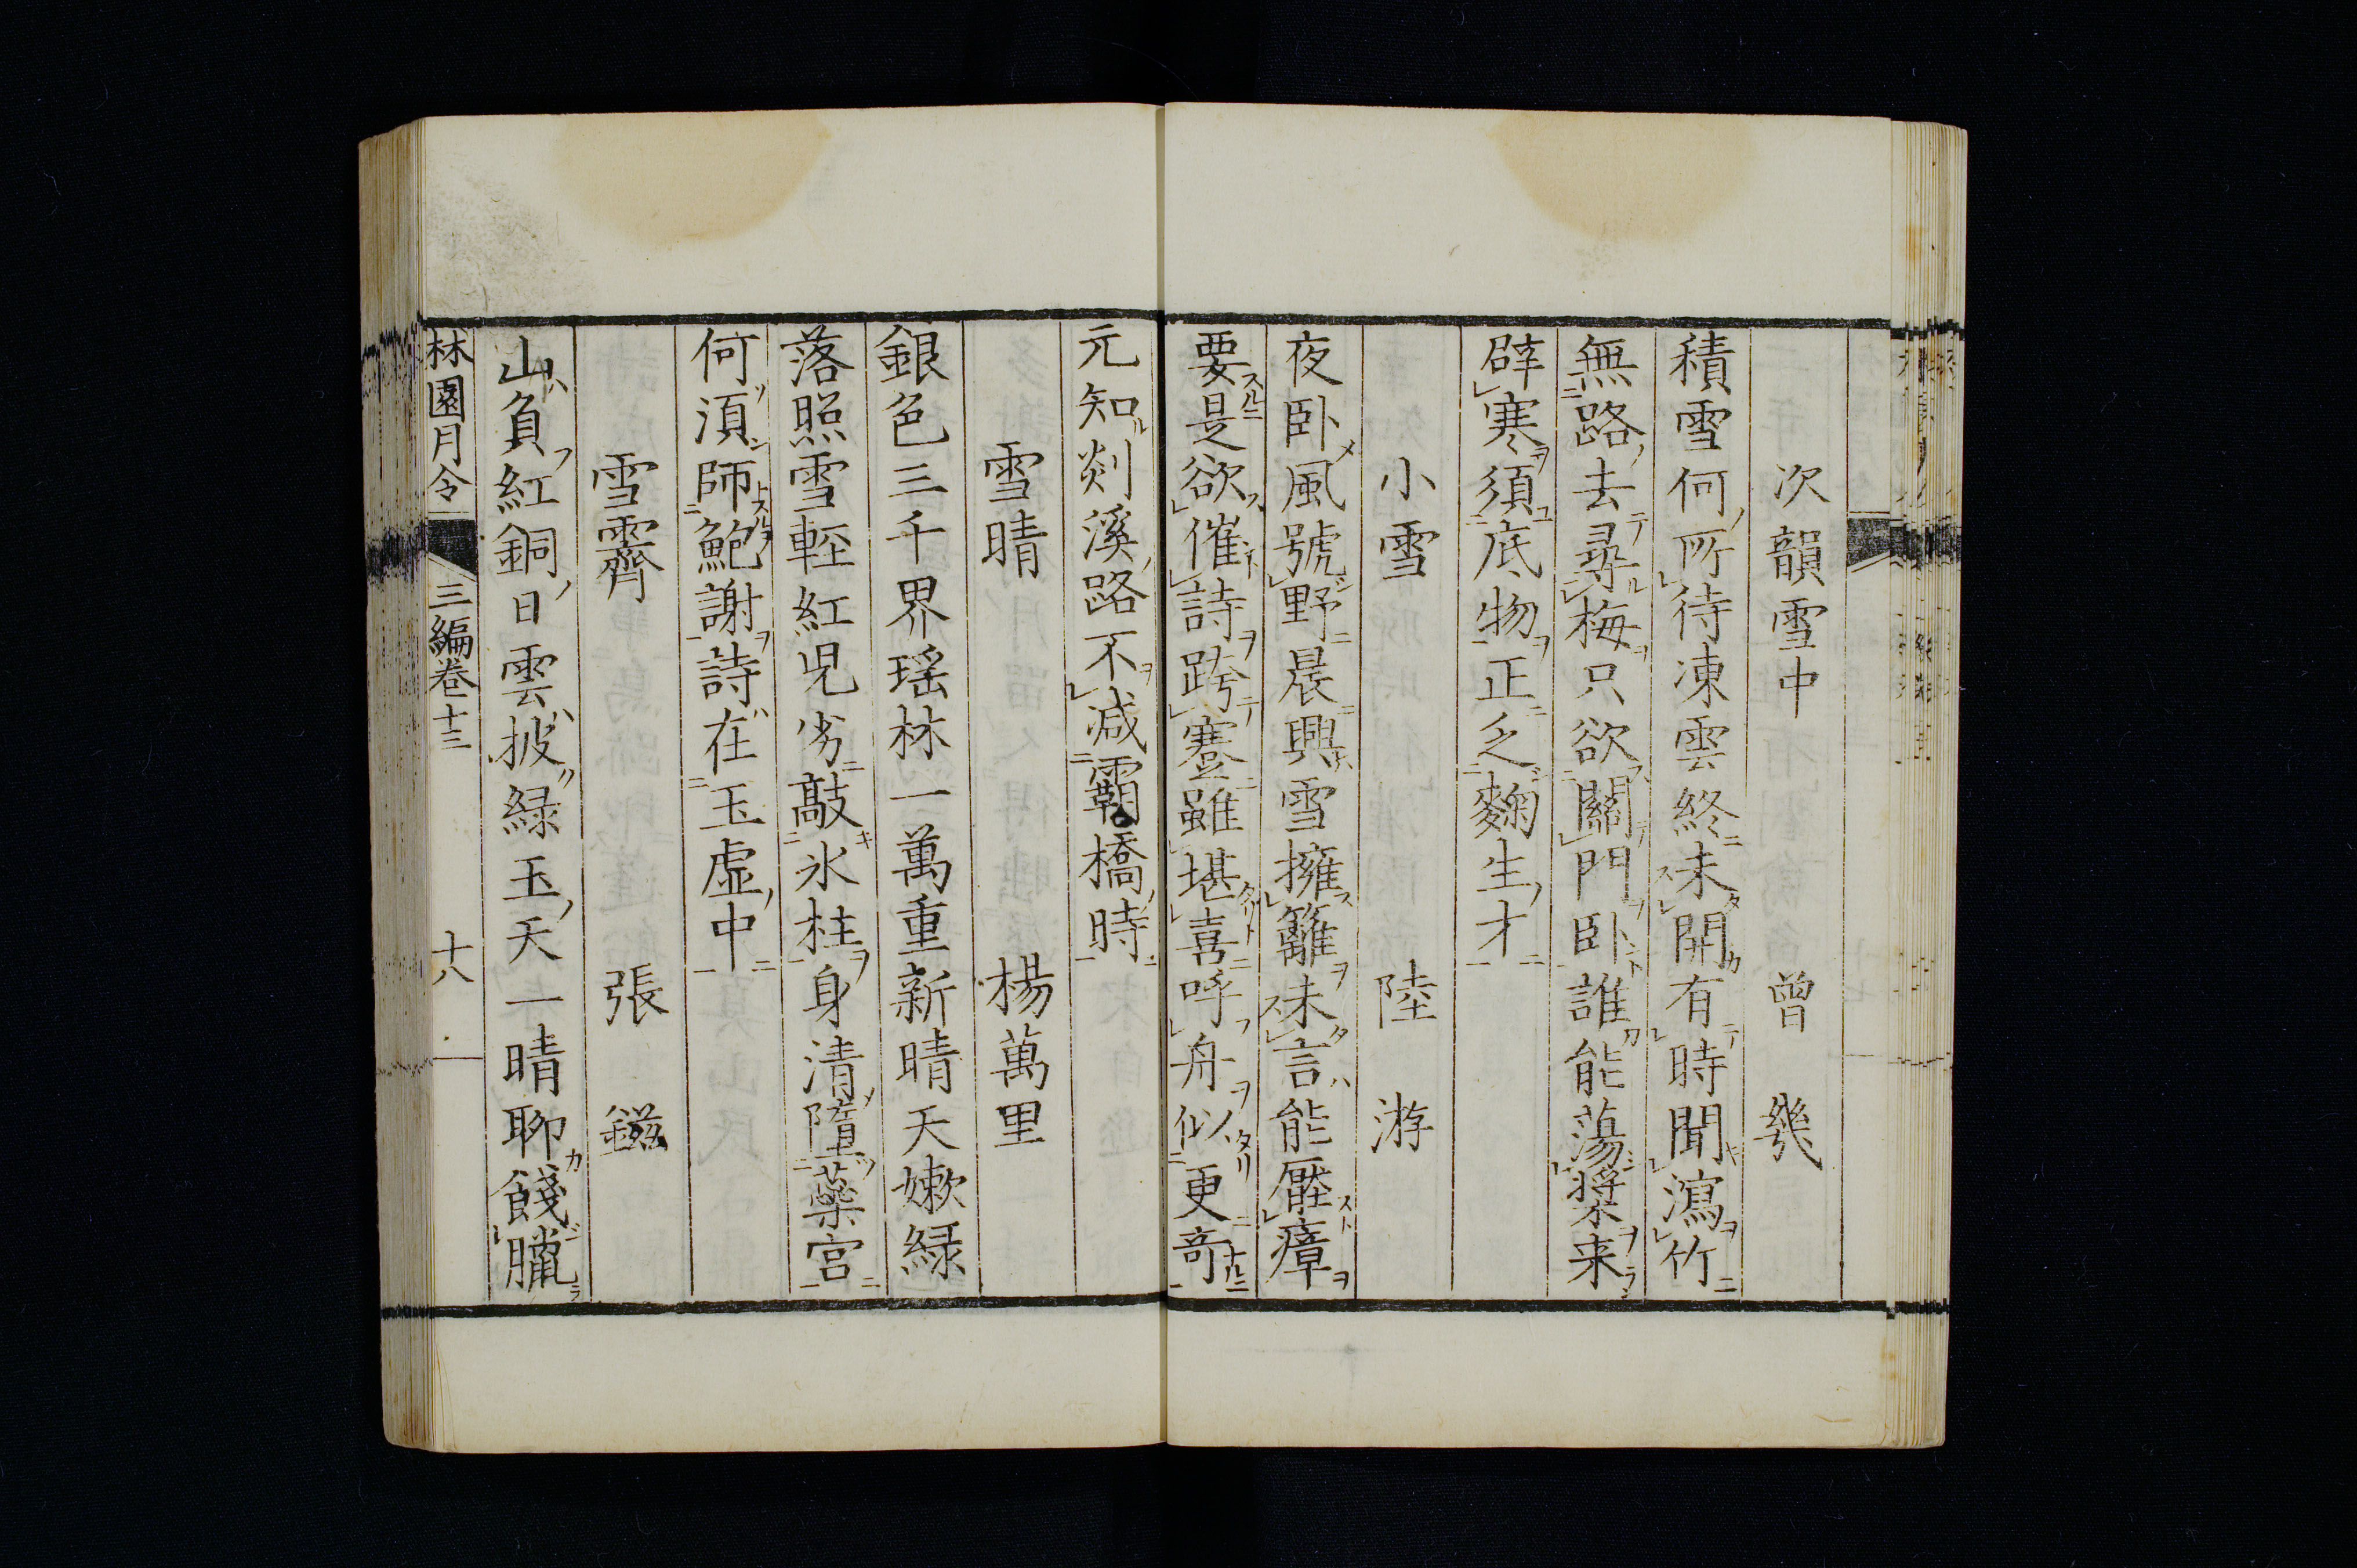 次韻雪中　曾幾
積雪何所待凍雲終未開有時聞瀉竹
無路去尋梅只欲關門臥誰能蕩槳来
辟寒須底物正乏麴生才
小雪　陸游
夜臥風號野晨興雪擁籬未言能壓瘴
要是欲催詩跨蹇雖堪喜呼舟似更奇
元知剡溪路不減霸橋時
雪晴　楊萬里
銀色三千界瑶林一萬重新晴天嫩緑
落照雪輕紅児劣敲氷柱身清墮蘂宮
何湏師鮑謝詩在玉虚中
雪霽　張鎡
山負紅銅日雲披緑玉天一晴聊餞臘
林園月令　三編卷十三　十八